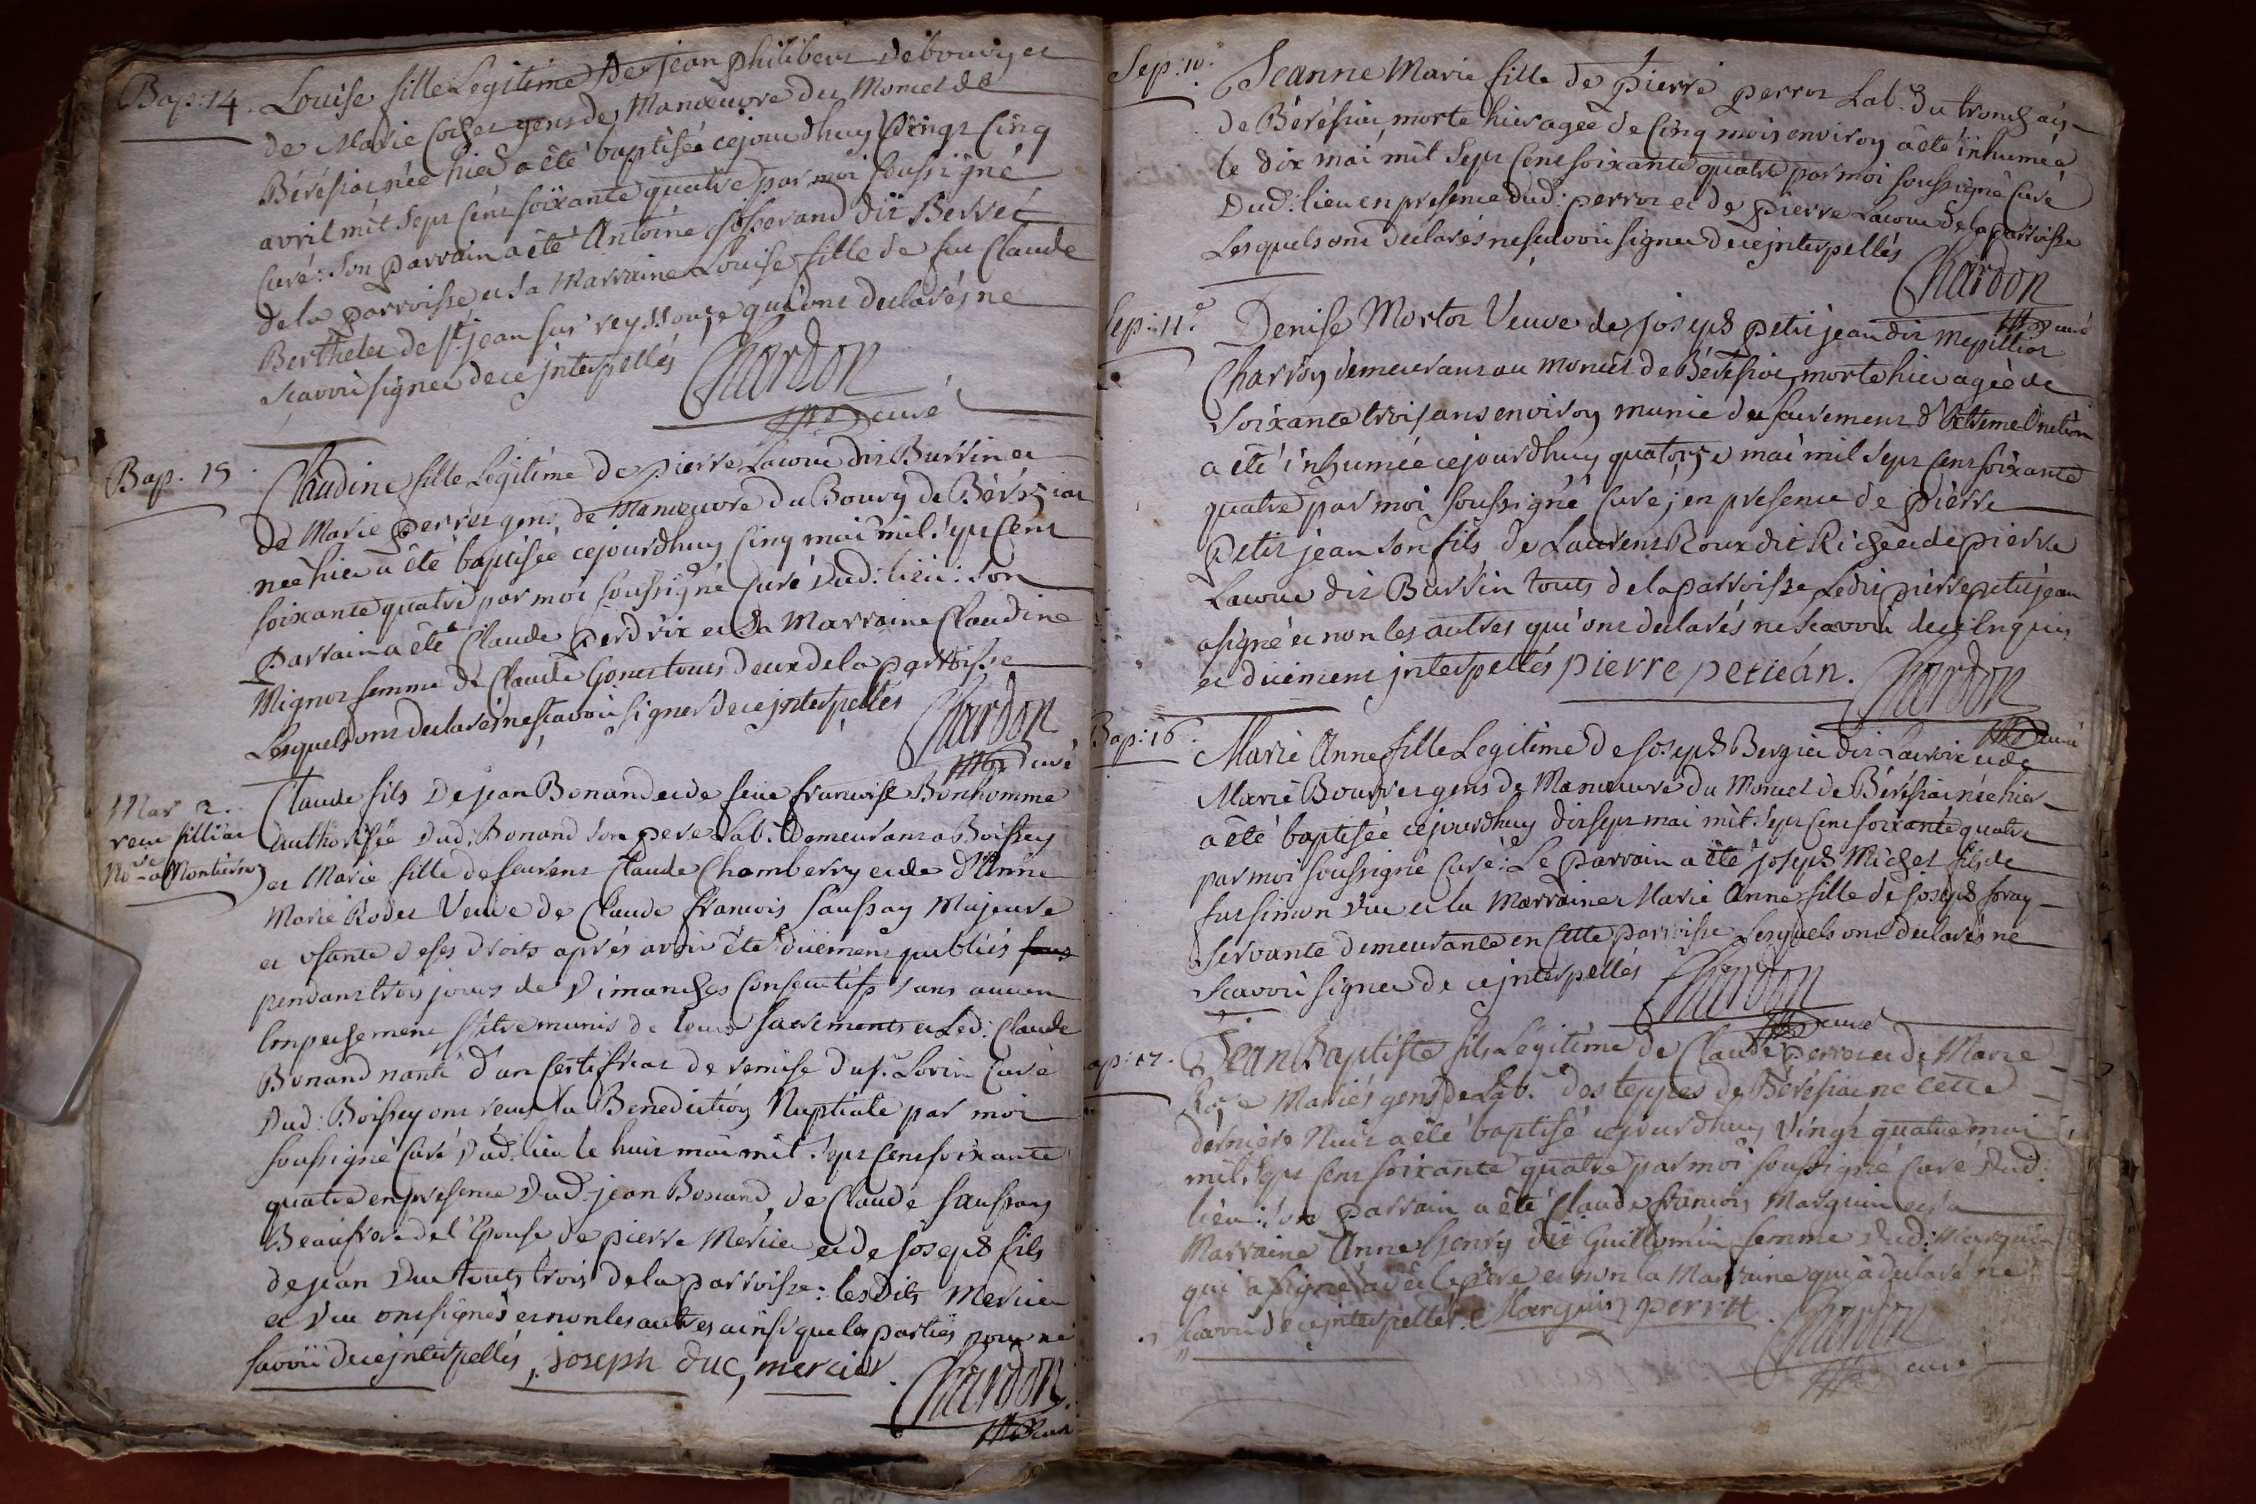 Bap: 14. Louise fille Legitime De jean philibert Debourg et
de Marie Cochet gens de Manœuvre du Moncet de
Béréziat née hier a êté baptisée cejourdhuy Vingt Cinq
avril mil Sept Cent soixante quatre par moi soussigné
Curé: son parrain a êté Antoine dit Berret
de la parroisse et sa Marraine Louise fille de feu Claude
Berthelet de st. jean sur reyssouze qui ont declarés ne
scavoir signer de ce interpellés Chardon
curé
Bap. 15 Claudine fille Legitime de pierre Lacoue dit Burrin et
de Marie perret gens de Manœuvre du Bourg de Béréziat
née hier a êté baptisée cejourdhuy Cinq mai mil sept Cent
soixante quatre par moi soussigné Curé dud: lieu: son
parrain a êté Claude perdrix et sa Marraine Claudine
Mignot femme de Claude Gonet touts deux de la parroisse
Lesquels ont declarés ne scavoir signer de ce interpellés
Chardon
curé
Mar 2.
Claude fils De jean Bonand et de feue francoise Bonhomme
authorisée dud: Bonand son pere Lab. Demeurant a Boissey
et Marie fille de feu Claude Chamberry et de d'Anne
Marie Rodet Veuve de Claude francois saussay Majeure
et Usante de ses droits aprés avoir êté düement publiés
pendant trois jours de Dimanches Consecutifs sans aucun
Empechement s'être munis de leurs sacrements et Led: Claude
Bonand nanti d'un Certificat de remise du sr. Lorin Curé
dud: Boissey ont reçu la Benediction Nuptiale par moi
soussigné Curé dud. lieu le huit mai mil Sept Cent soixante
quatre en presence dud. jean Bonand, de Claude saussay
Beaufrere de l'Epouse de pierre Mercier et de joseph fils
de jean duc touts trois de la parroisse: lesdits Mercier
et duc ont signés et non les autres ainsi que les parties pour ne
savoir de ce interpellés, joseph duc, mercier. Chardon
curé
Sep: 10. Jeanne Marie fille de pierre perrot Lab. du
de Béréziat, morte hier agée de Cinq mois environ a êté inhumée
le dix mai mil Sept Cent soixante quatre par moi soussigné Curé
dud: lieu en presence dud: perrot et de pierre Lacoue de la parroisse
Lesquels ont declarés ne scavoir signer de ce interpellés
Chardon
curé
Sep: 11.e Denise Mortot Veuve de joseph petit jean dit Mepillat
Charron demeurant au moncet de Béréziat, morte hier agée de
soixante trois ans environ munie du sacrement d'Extreme Onction
a êté inhumée cejourdhuy quatorze mai mil Sept Cent soixante
quatre par moi soussigné Curé; en presence de pierre
petit jean son fils de Laurent Roux dit Riche et de pierre
Lacoue dit Burrin touts de la parroisse. Ledit pierre petit jean
a signé et non les autres qui ont declarés ne scavoir de ce Enquis
et düement interpellés pierre petiean. Chardon
curé
Bap: 16. Marie Anne fille Legitime de joseph Bergier dit Lacroix et de
Marie Bourret gens de Manœuvre du Moncet de Béréziat née hier
a êté baptisée cejourdhuy dixsept mai mil Sept Cent soixante quatre
par moi soussigné Curé: Le parrain a êté joseph Michel fils de
feu simon duc et la Marraine Marie Anne fille de joseph
servante demeurante en cette parroisse Lesquels ont declarés ne
scavoir signer de ce interpellés Chardon
curé
ap: 17. Jean Baptiste fils Legitime de Claude perret et de Marie
Mariés gens de Lab. des teppes de Béréziat né cette
derniére Nuit a êté baptisé cejourdhuy Vingt quatre mai
mil Sept Cent soixante quatre par moi soussigné Curé dud:
lieu: son parrain a êté Claude francois Marguin et sa
Marraine Anne Genry dit Guillomin femme dud: Marguin
qui a signé avec le pere et non la Marraine qui a declaré ne
scavoir de ce interpellée. C Marguin perret. Chardon
curé